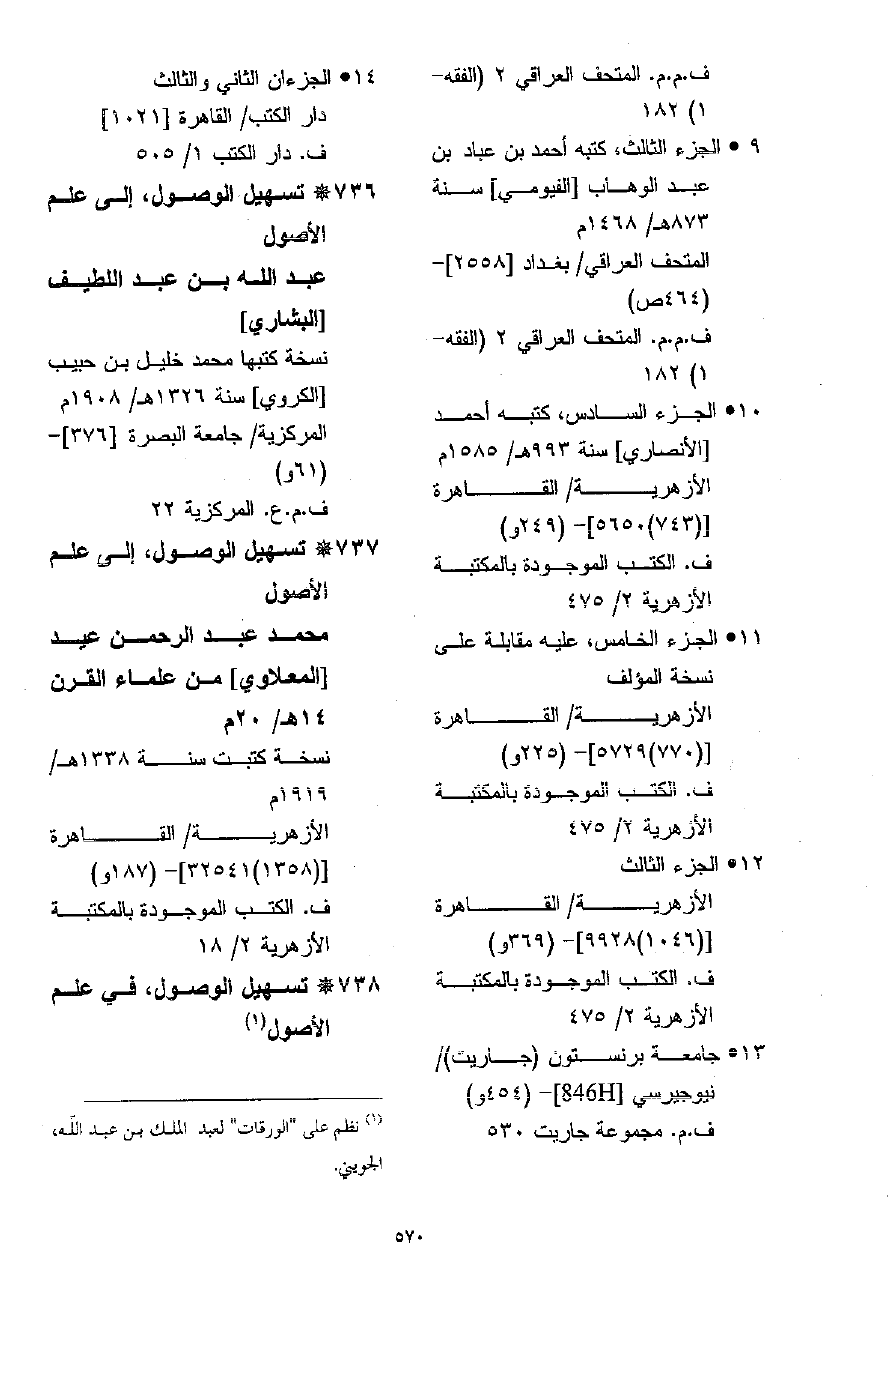 ف.م.م. المتحف العراقي ٢ (الفقه-
١) ١٨٢
٩ • الجزء الثالث، كتبه أحمد بن عباد بن
عبد الوهاب [الفيومي] سنة
٨٧٣هـ/ ١٤٦٨م
المتحف العراقي/ بغداد [٢٥٥٨]-
(٤٦٤ص)
ف.م.م. المتحف العراقي ٢ (الفقه-
١) ١٨٢
١٠• الجزء السادس، كتبه أحمد
[الأنصاري] سنة ٩٩٣هـ/ ١٥٨٥م
الأزهرية/ القاهرة
[(٧٤٣)٥٦٥٠]- (٢٤٩و)
ف. الكتب الموجودة بالمكتبة
الأزهرية ٢/ ٤٧٥
١١• الجزء الخامس، عليه مقابلة على
نسخة المؤلف
الأزهرية/ القاهرة
[(٧٧٠)٥٧٢٩]- (٢٢٥و)
ف. الكتب الموجودة بالمكتبة
الأزهرية ٢/ ٤٧٥
١٢• الجزء الثالث
الأزهرية/ القاهرة
[(١٠٤٦)٩٩٢٨]- (٣٦٩و)
ف. الكتب الموجودة بالمكتبة
الأزهرية ٢/ ٤٧٥
١٣• جامعة برنستون (جاريت)/
نيوجيرسي [846H]- (٤٥٤و)
ف.م. مجموعة جاريت ٥٣٠
١٤• الجزءان الثاني والثالث
دار الكتب/ القاهرة [١٠٢١]
ف. دار الكتب ١/ ٥٠٥
٧٣٦* تسهيل الوصول، إلى علم
الأصول
عبد الله بن عبد اللطيف
[البشاري]
نسخة كتبها محمد خليل بن حبيب
[الكروي] سنة ١٣٢٦هـ/ ١٩٠٨م
المركزية/ جامعة البصرة [٣٧٦]-
(٦١و)
ف.م.ع. المركزية ٢٢
٧٣٧* تسهيل الوصول، إلى علم
الأصول
محمد عبد الرحمن عيد
[المعلاوي] من علماء القرن
١٤هـ/ ٢٠م
نسخة كتبت سنة ١٣٣٨هـ/
١٩١٩م
الأزهرية/ القاهرة
[(١٣٥٨)٣٢٥٤١]- (١٨٧و)
ف. الكتب الموجودة بالمكتبة
الأزهرية ٢/ ١٨
٧٣٨* تسهيل الوصول، في علم
الأصول(١)
(١) نظم على "الورقات" لعبد الملك بن عبد اللّه،
الجويني.
٥٧٠